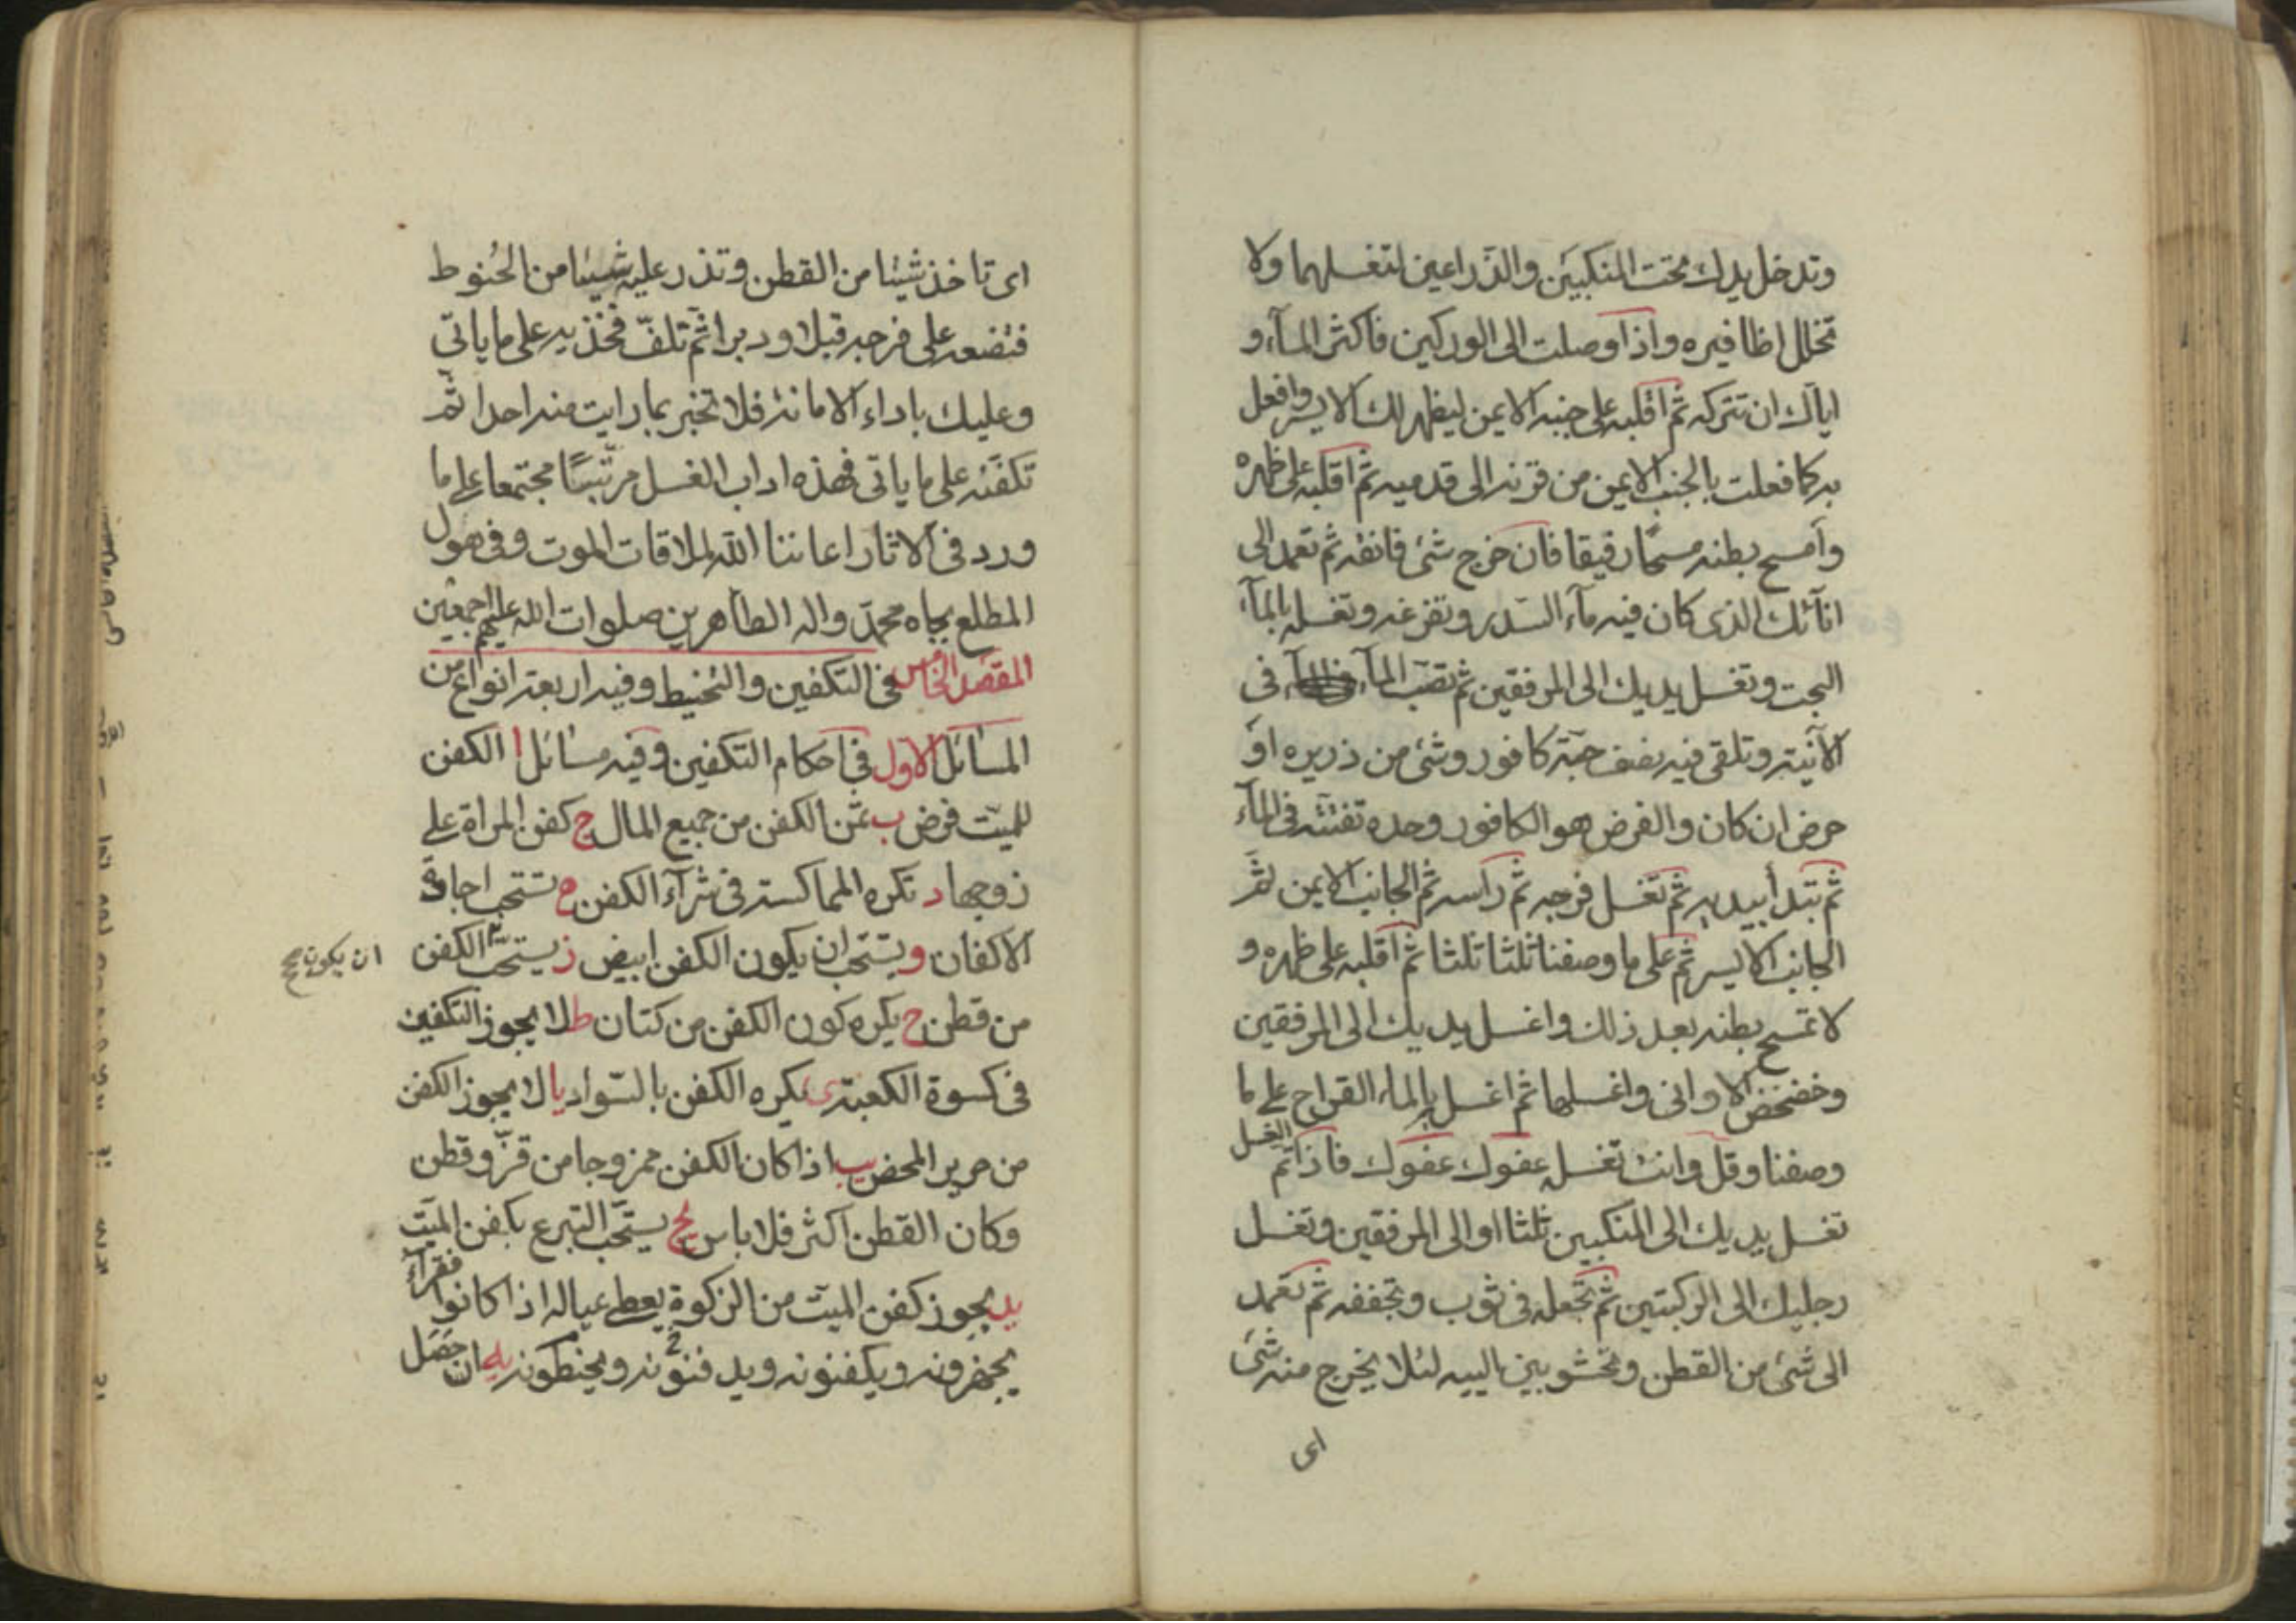 وتدخل يدك تحت المنكبين والذراعين لتغسلهما ولا
تخلل اظافيره واذا وصلت الى الوركين فاكثر المآء و
اياك ان تتركه ثم اقلبه على جنبه الايمن ليظهر لك الايسر وافعل
به كما فعلت بالجنب الايمن من قرنه الى قدميه ثم اقلبه على ظهره
وامسح بطنه مسحًا رقيقا فان خرج شئ فانقه ثم تعمد الى
انآئك الذى كان فيه مآء السّدر وتفرغه وتغسله بالمآء
البحت وتغسل يديك الى المرفقين ثم تصّب المآء فى
الآنية وتلقى فيه نصف حبّة كافور وشئ من ذريره او
حرض ان كان والفرض هو الكافور وحده تفتّته فى المآء
ثم تبدأ بيديه ثم تغسل فرجه ثم راسه ثم الجانب الايمن ثمّ
الجانب الايسر ثم على ما وصفنا ثلثا ثلثا ثم اقلبه على ظهره و
لا تمسح بطنه بعد ذلك واغسل يديك الى المرفقين
وخضخض الاوانى واغسلها ثم اغسل بالماء القراح على ما
وصفنا وقل وانت تغسله عفوك عفوك فاذا تم الغسل
تغسل يديك الى المنكبين ثلثا او الى المرفقين وتغسل
رجليك الى الركبتين ثم تجعله فى ثوب وتجففه ثم تعمد
الى شئ من القطن وتحشو بين الييه لئلا يخرج منه شئ
اى
اى تاخذ شيئا من القطن وتذر عليه شيئا من الحُنوط
فتضعه على فرجه قبلا ودبرا ثمّ تلفّ فخذيه على ما ياتى
وعليك باداء الامانة فلا تخبر بما رايت منه احدا ثمّ
تكفّنه على ما ياتى فهذه اداب الغسل مرتّبًا مجتمعا على ما
ورد فى الاثار اعاننا الله لملاقات الموت وفى هول
المطلع بجاه محمّد واله الطاهرين صلوات الله عليهم اجمعين
المقصد الخامس فى التكفين والتحنيط وفيه اربعة انواع من
المسائل الاول فى احكام التكفين وفيه مسائل ا الكفن
للميّت فرض ب ثمن الكفن من جميع المال ج كفن المراة على
زوجها د تكره المماكسة فى شرآء الكفن ه تستحب اجادة
الاكفان و يستحّب ان يكون الكفن ابيض ز يستحّب الكفن
ان يكون صح
من قطن ح يكره كون الكفن من كتان ط لا يجوز التكفين
فى كسوة الكعبة ى يكره الكفن بالسّواد يا لا يجوز الكفن
من حرير المحض يب اذا كان الكفن ممزوجا من قزّ وقطن
وكان القطن اكثر فلا باس يج يستحّب التبرع بكفن الميّت
يد يجوز كفن الميّت من الزكوة يعطى عياله اذا كانوا فقرآء
يجهزونه ويكفنونه ويدفنونه ويحنطونه يه ان حصل